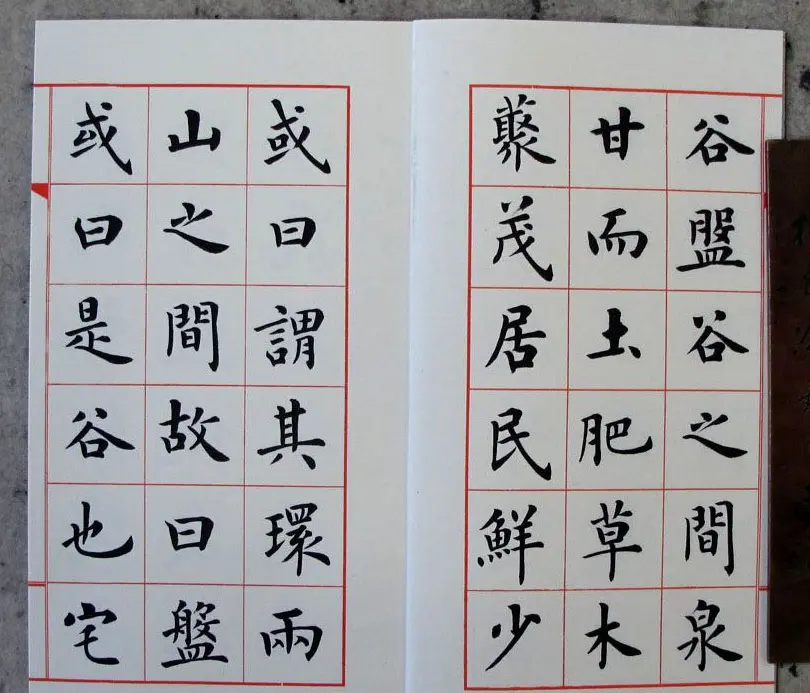 谷盤谷之間泉
甘而土肥草木
藂茂居民鮮少
或曰謂其環兩
山之間故曰盤
或曰是谷也宅